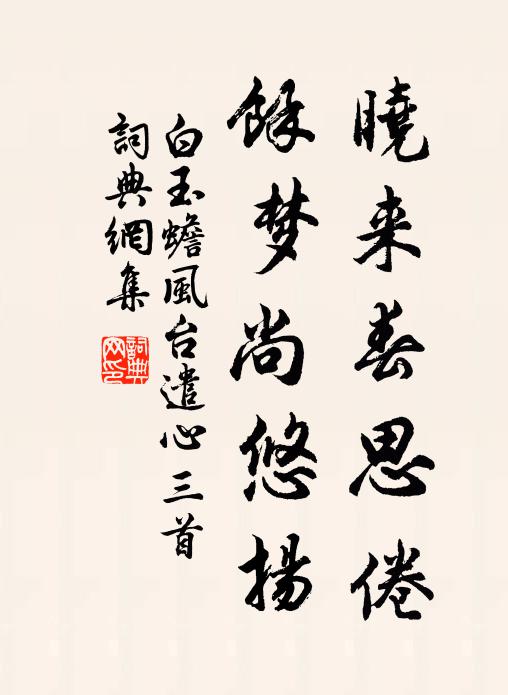 曉来春思倦
餘梦尚悠揚
白玉蟾風台遣心三首
詞典網集
詞典网印